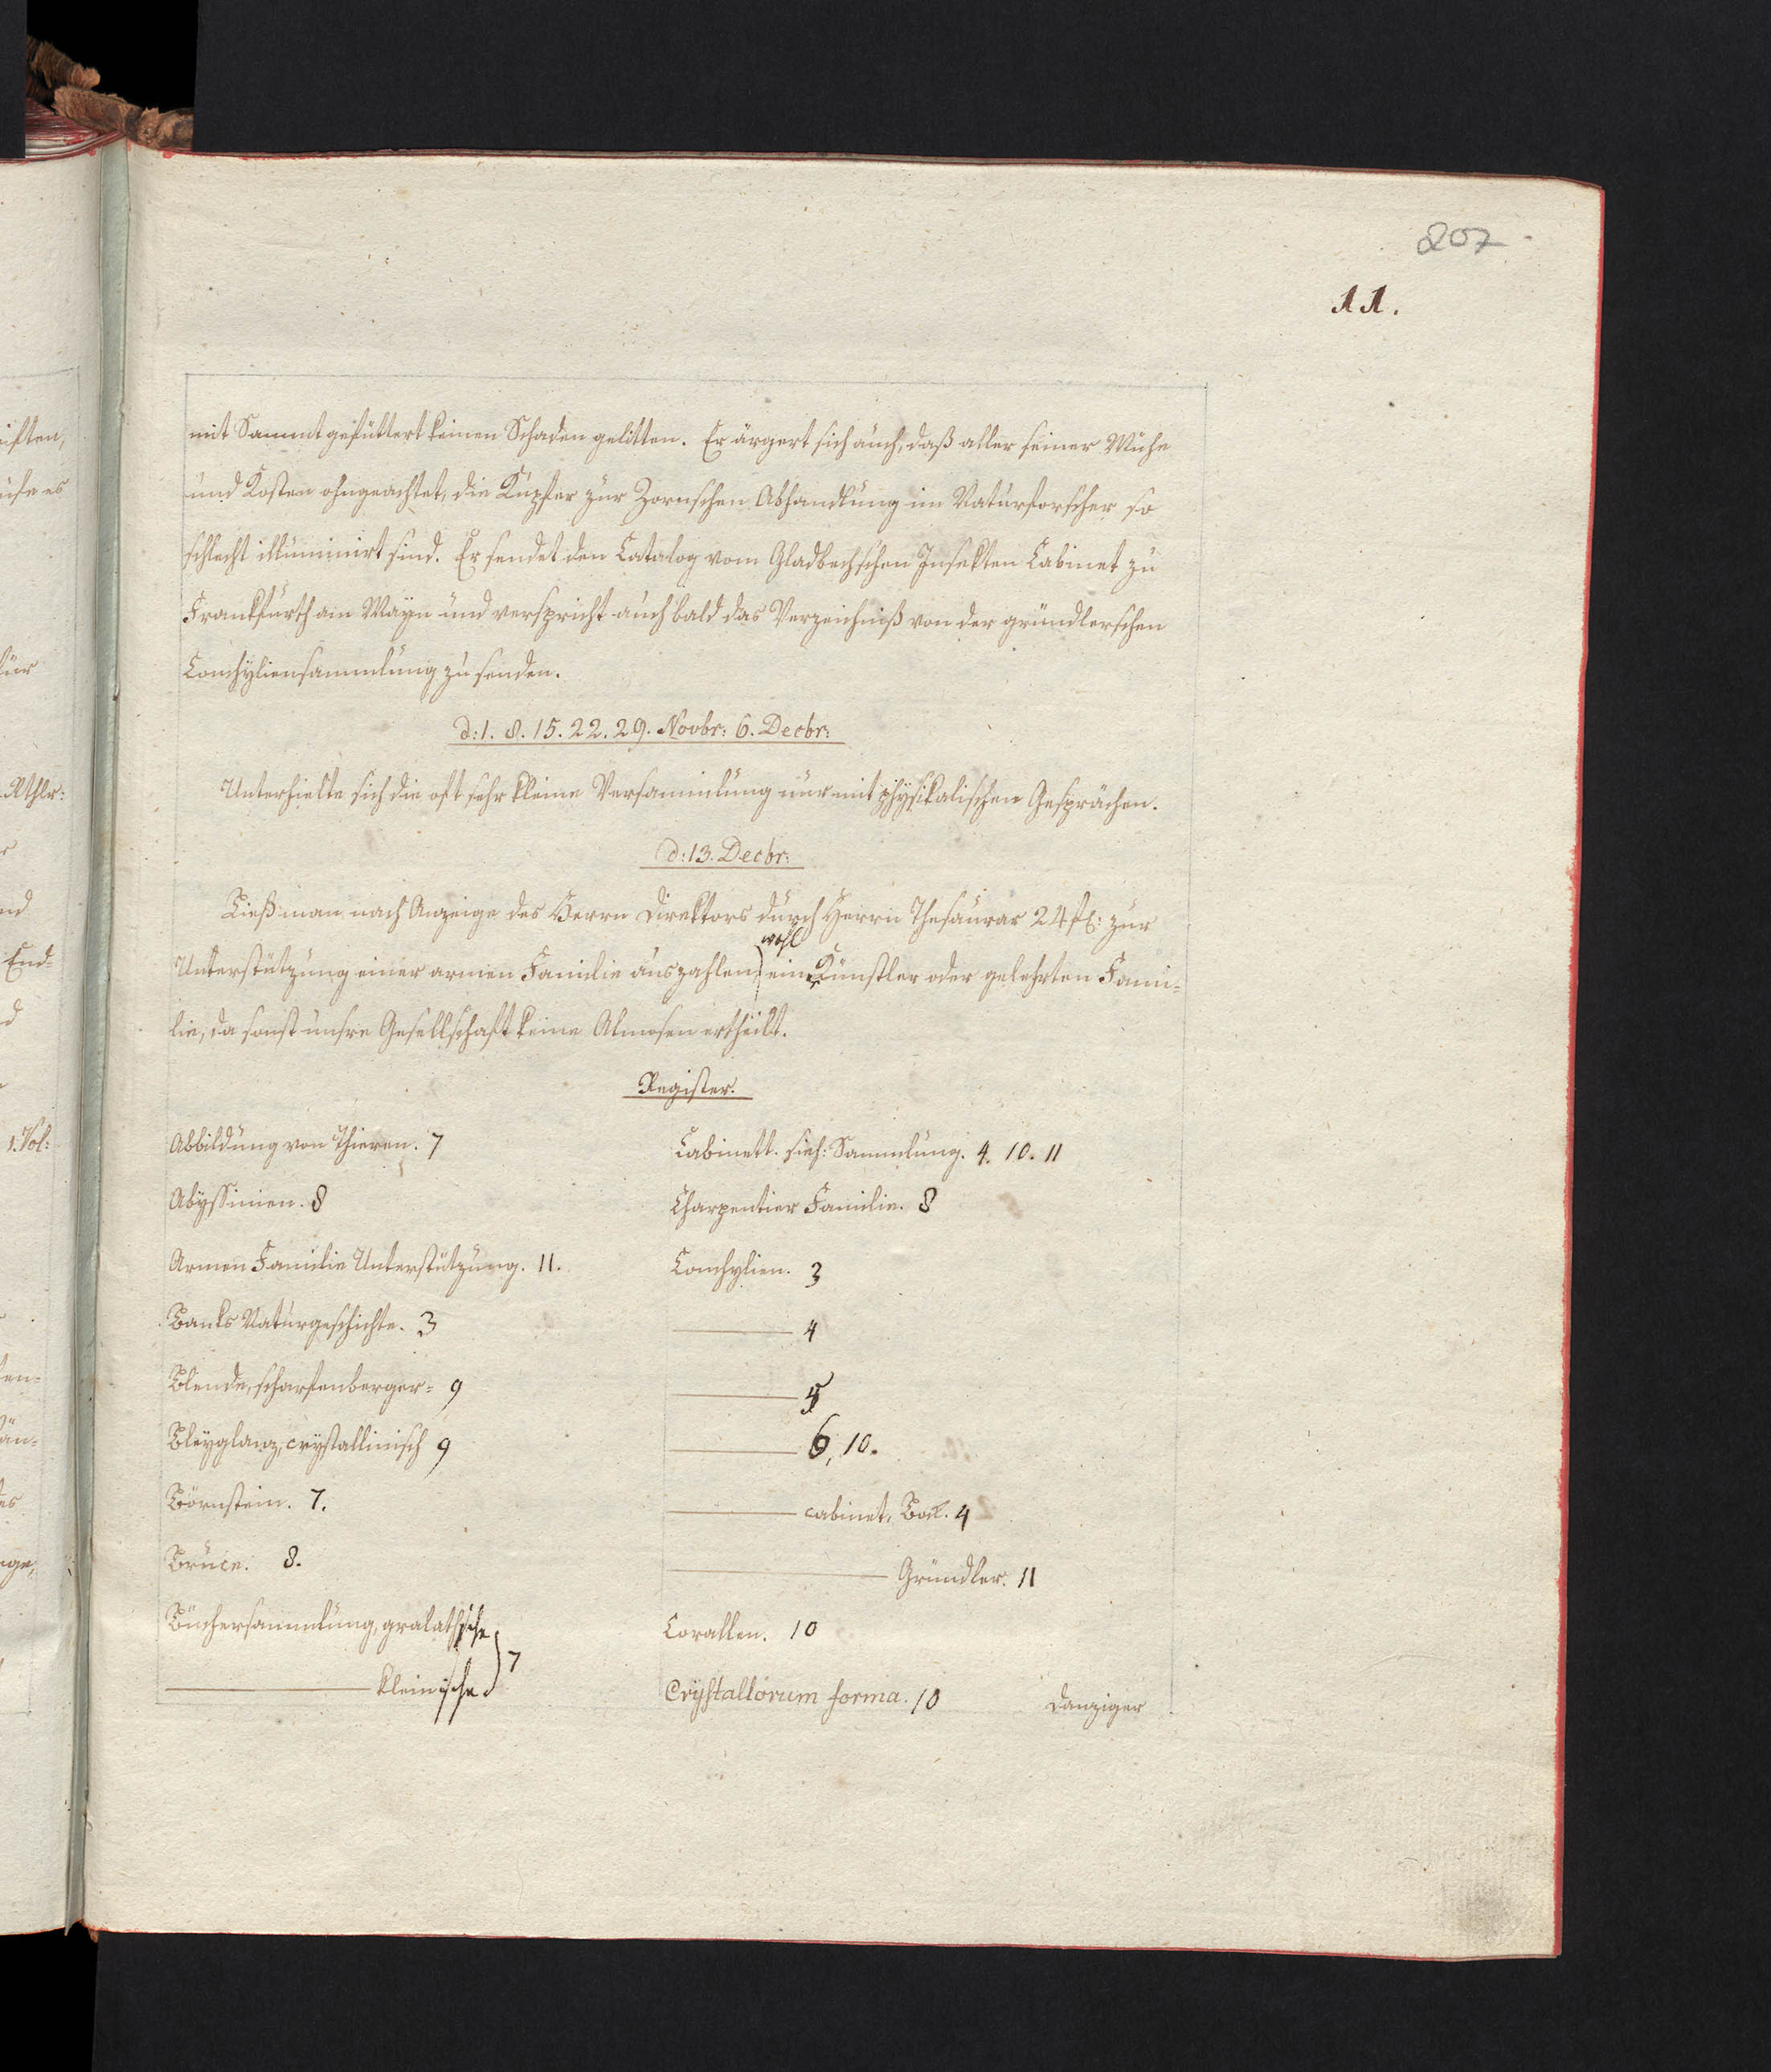 207
11.
mit Sammt gefüttert keinen Schaden gelitten. Er ärgert sich auch, daß aller seiner Mühe
und Kosten ohngeachtet, die Kupfer zur Zornschen Abhandlung im Naturforscher so
schlecht illuminirt sind. Er sendet den Catalog vom Gladbachschen Insekten Cabinet zu
Frankfurth am Mayn und verspricht auch bald das Verzeichniß von der gründlerschen
Conchyliensammlung zu senden.
d: 1. 8. 15. 22. 29. Novbr: 6. Decbr:
Unterhielte sich die oft sehr kleine Versammlung nur mit physikalischen Gesprächen.
d: 13. Decbr:
Ließ man nach Anzeige des Herrn Direktors durch Herrn Thesaurar 24 fl: zur
wohl
Unterstützung einer armen Familie auszahlen, eine Künstler oder gelehrten Fami-
lie, da sonst unsre Gesellschaft keine Almosen ertheilt.
Register.
Abbildung von Thieren. 7
Abyssinien. 8
Armen Familie Unterstützung. 11.
Banks Naturgeschichte. 3
Blende, scharfenberger- 9
Bleyglanz, crystallinisch 9
Börnstein. 7.
Bruce. 8.
Büchersammlung, gralathsche
kleinische } 7
Cabinett. sieh: Sammlung. 4. 10. 11
Charpentier Familie. 8
Conchylien. 3
4
5
6, 10.
cabinet, Bock. 4
Gründler. 11
Corallen. 10
Crystallorum forma. 10
Danziger
ists
Rthlr:
nd
End-
1. Vol: